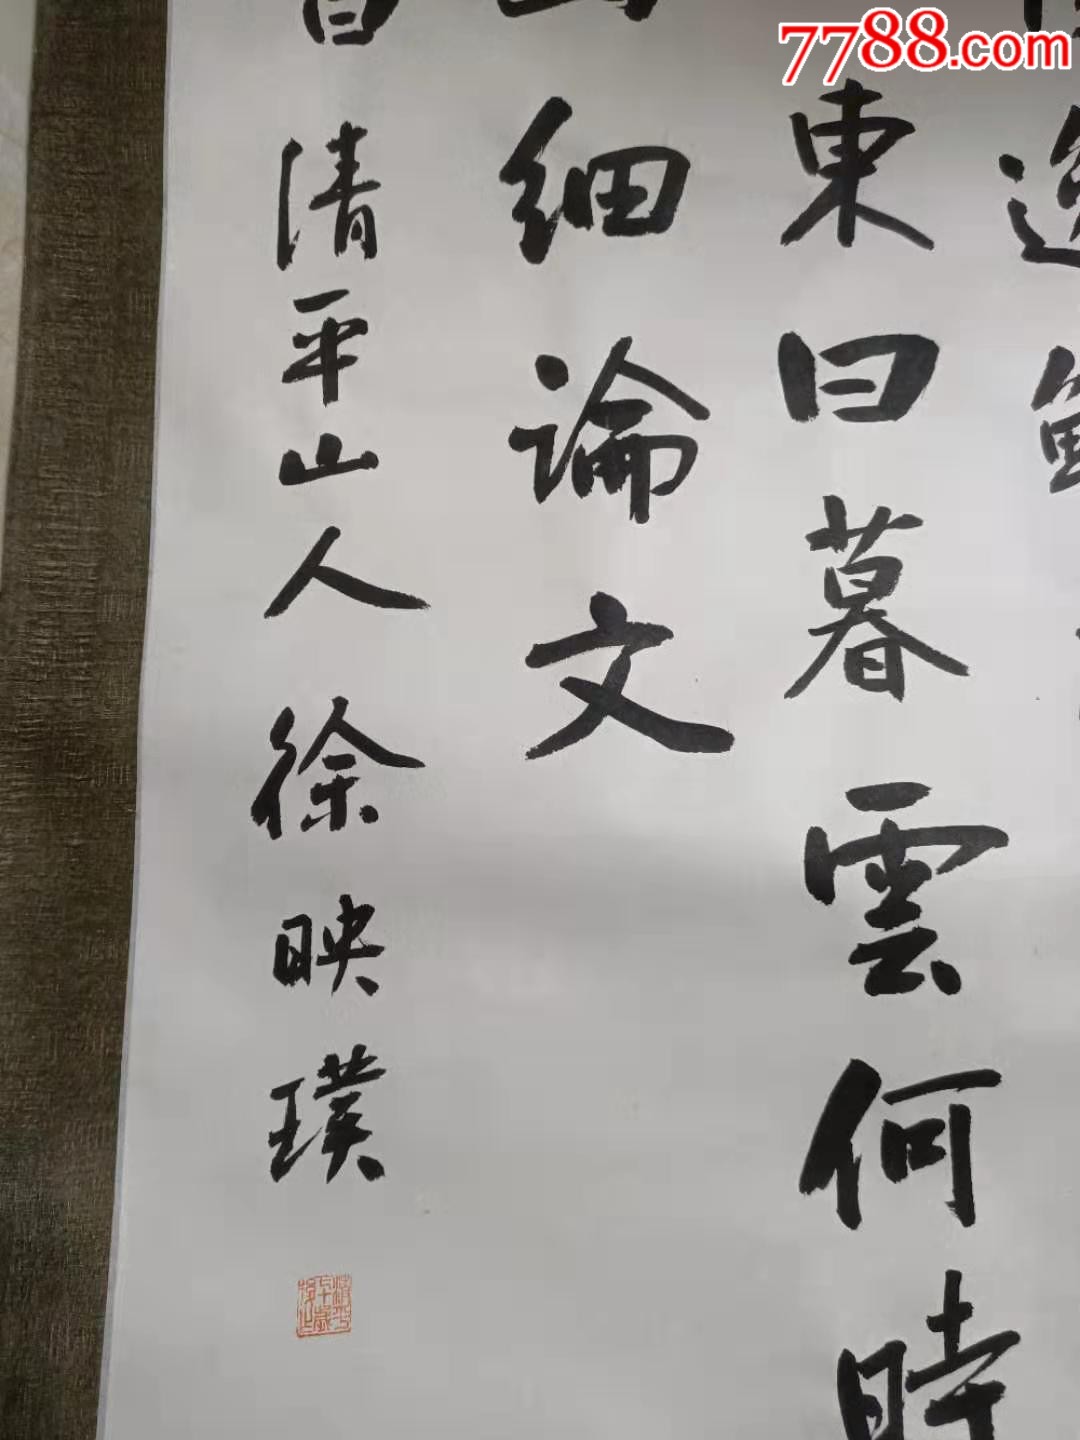 7788.com
逸
東日暮雲何時
細論文
清平山人徐映璞